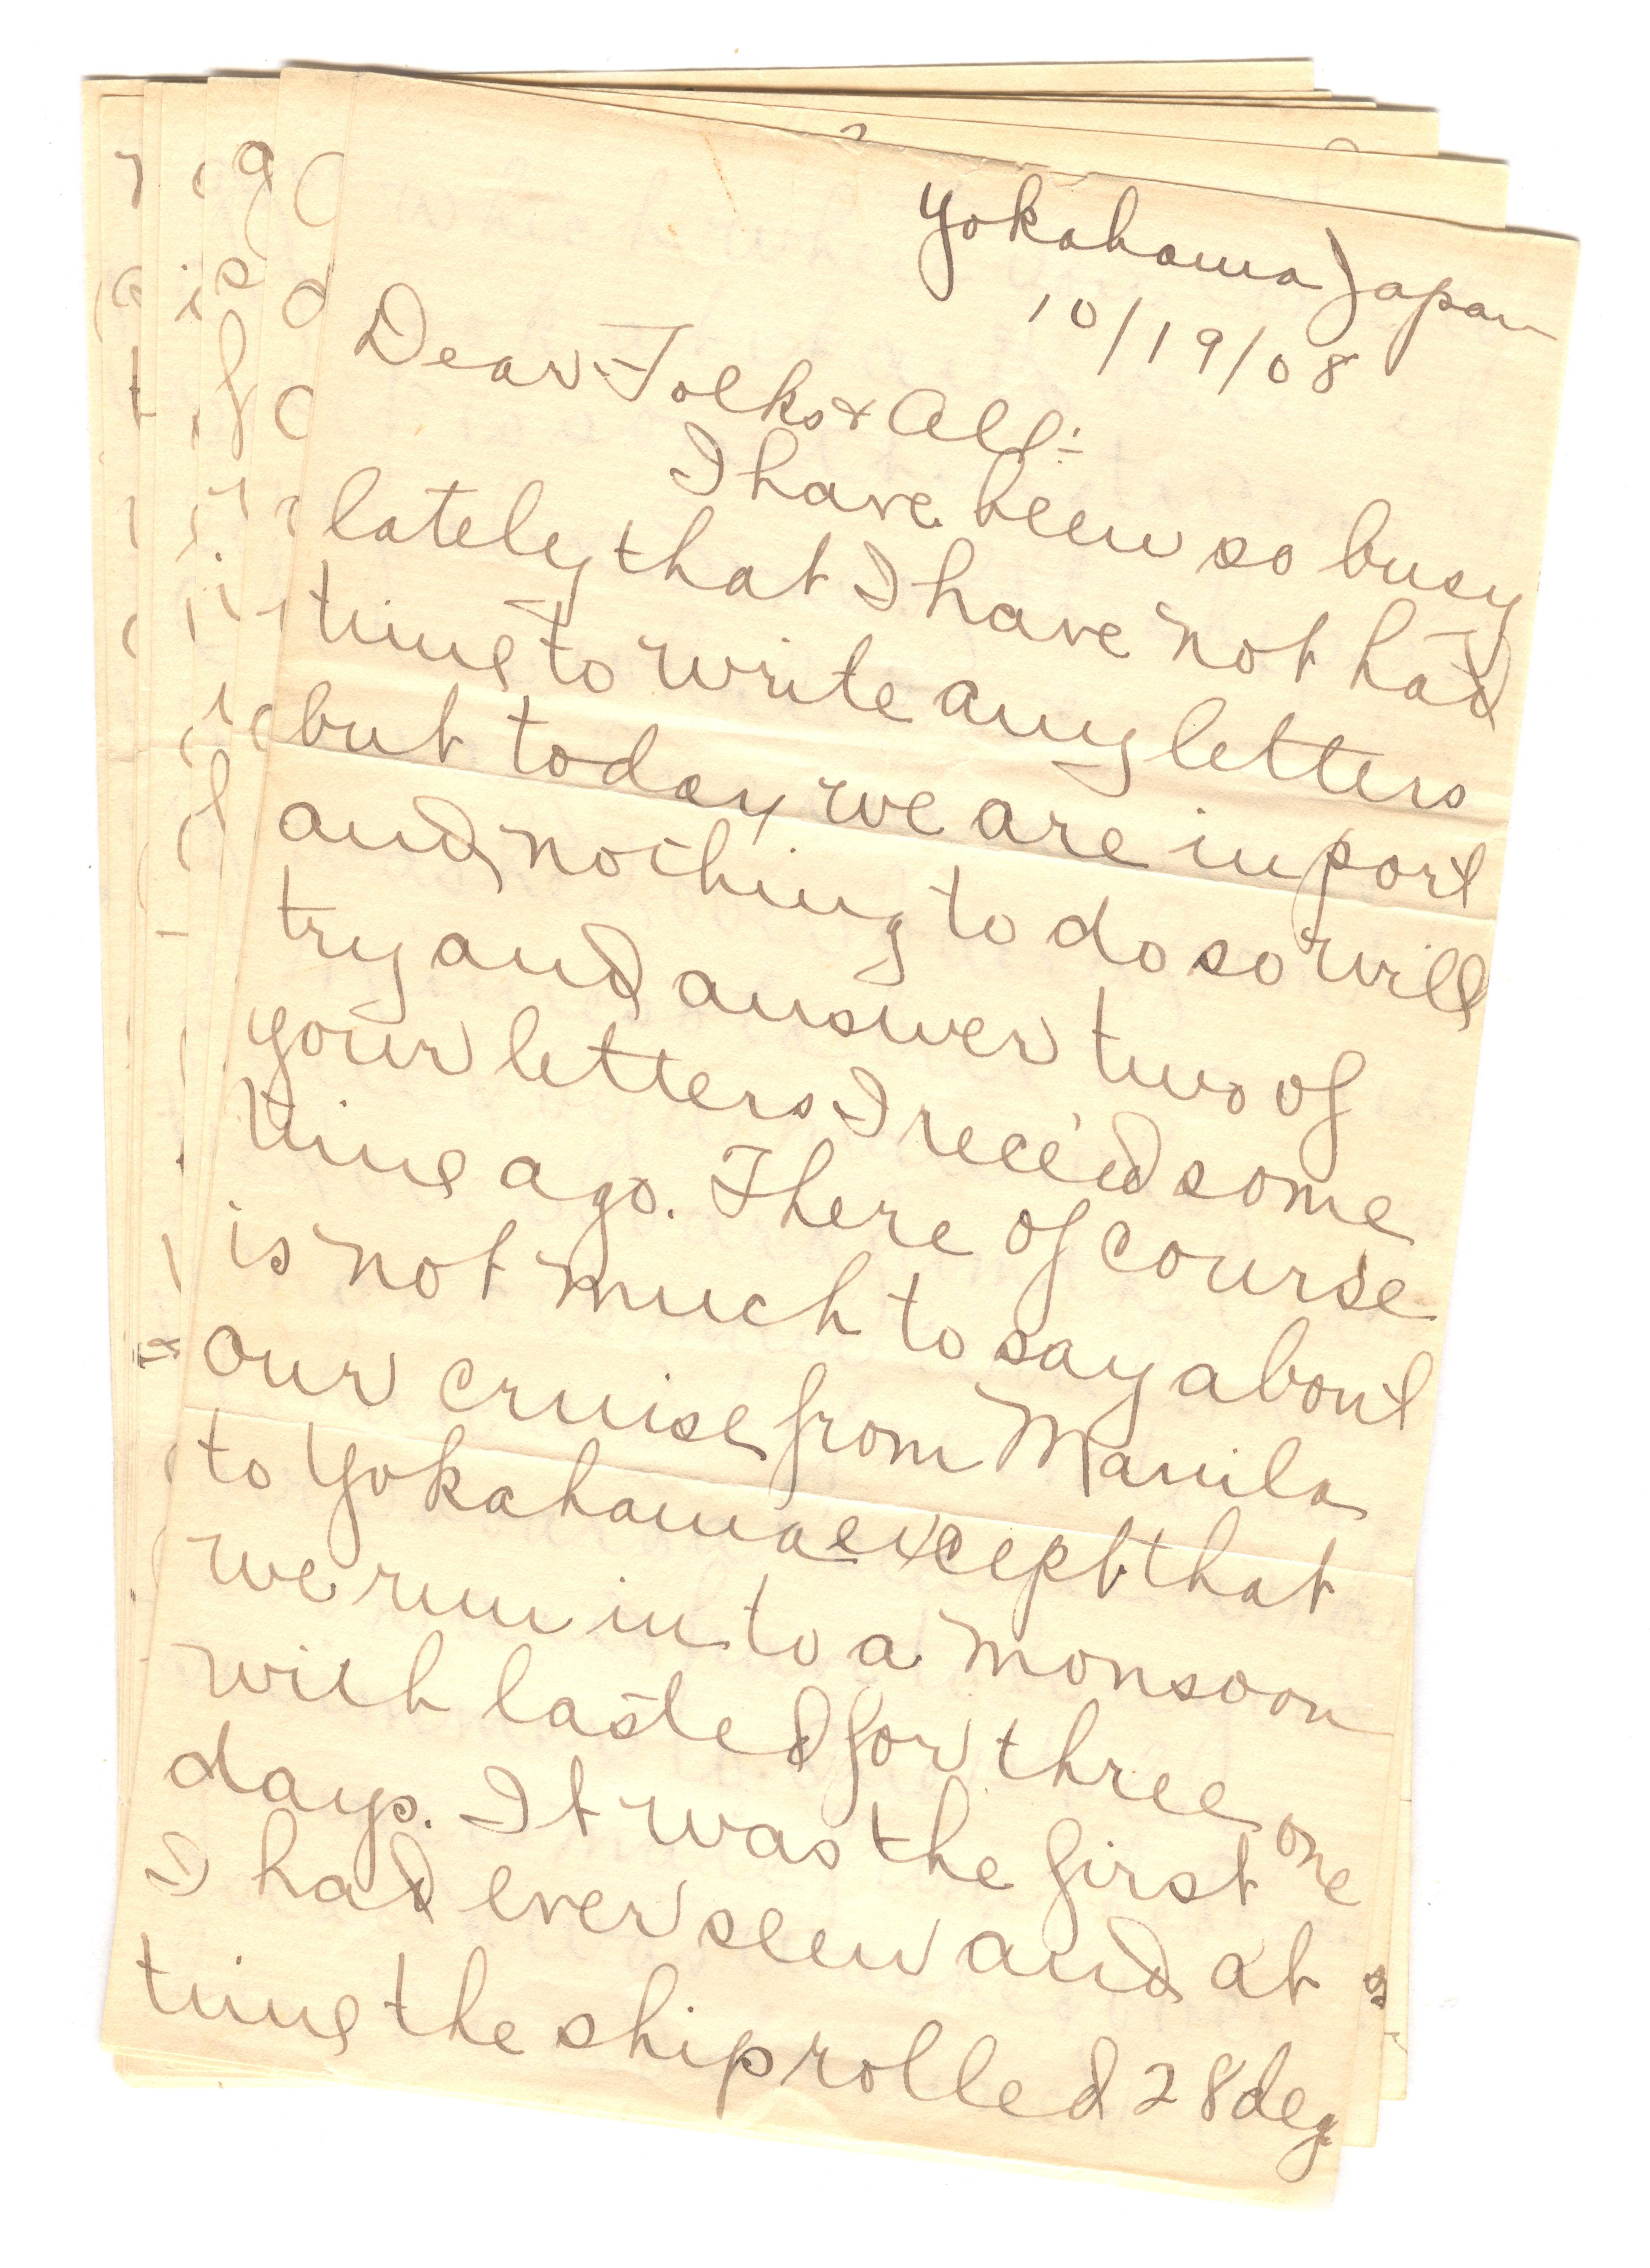 Yokahama Japan
10/19/08
Dear Folks & Alf:-
I have been so busy
lately that I have not had
time to write any letters
but today we are in port
and nothing to do so will
try and answer two of
your letters I rece'd some
time ago. There of course
is not much to say about
our cruise from Manila
to Yokahama except that
we run in to a monsoon
wich lasted for three
days. It was the first one
I had ever seen and at
time the ship rolled 28 deg